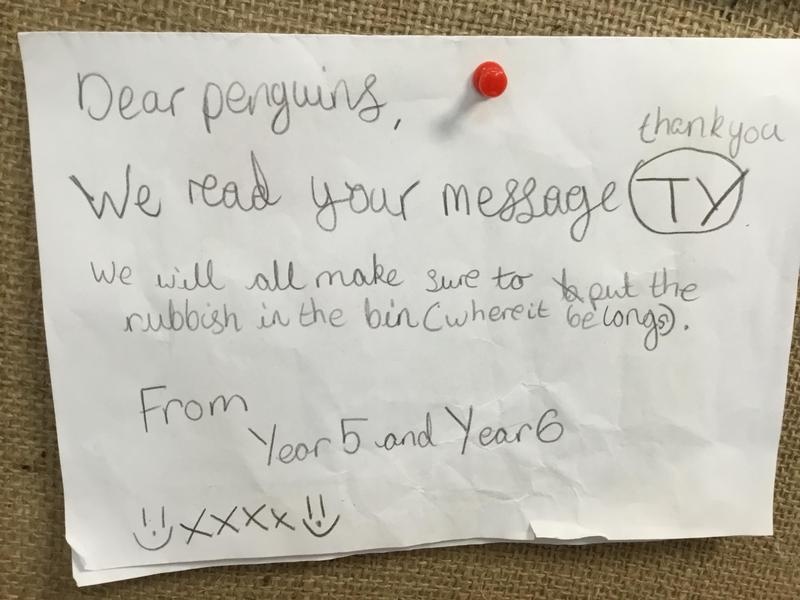 Dear penguins,
thankyou
We read your message TY
We will all make sure to put the
rubbish in the bin (where it belongs).
From
Year 5 and Year 6
xxxx